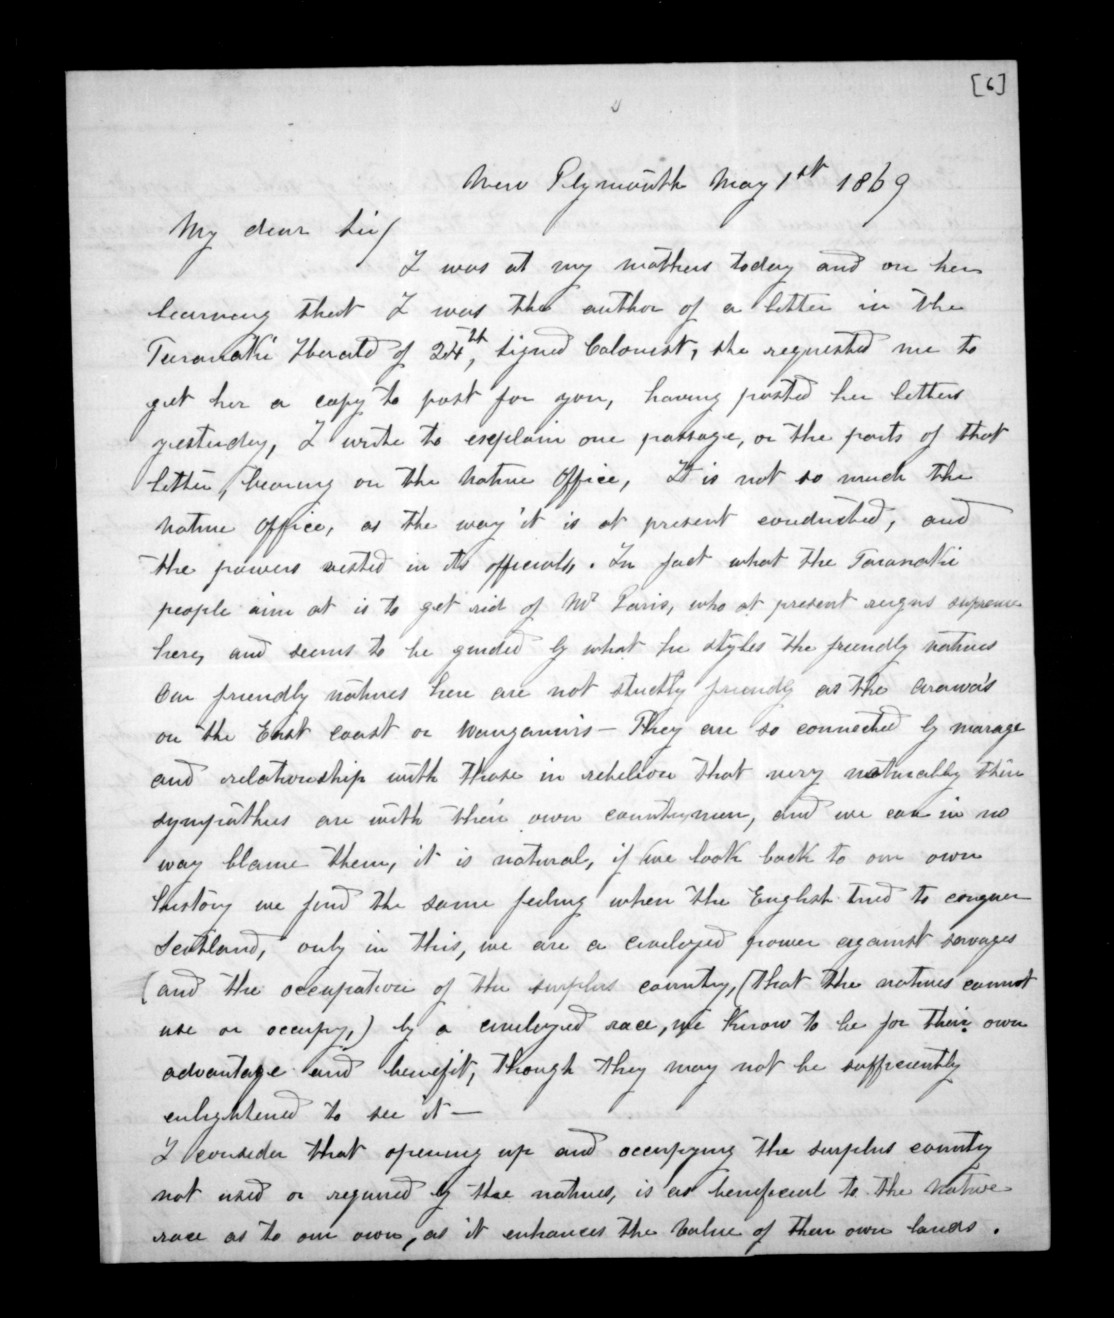 [6]
New Plymouth May 1st 1869
My dear Sir/
I was at my mothers today and on her
learning that I was the author of a letter in the
Taranaki Herald of 24th, signed Colonist, she requested me to
get her a copy to post for you, having posted her letters
yesterday, I write to explain one passage, or the parts of that
letter, bearing on the Native Office, It is not so much the
Native Office, as the way it is at present conducted, and
the powers vested in its officials. In fact what the Taranaki
people aim at is to get rid of Mr Paris, who at present reigns supreme
here, and seems to be guided by what he styles the friendly natives
Our friendly natives here are not strictly friendly as the Arawa's
on the East coast or Wanganui's — They are so connected by marage
and relationship with those in rebelion that very naturably their
sympathies are with their own countrymen, and we can in no
way blame them, it is natural, if we look back to our own
history we find the same feeling when the English tried to conquer
Scotland, only in this, we are a civelyed power against savages
(and the occupation of the surplus country, (that the natives cannot
use or occupy,) by a civelyed race, we know to be for their own
advantage and benefit, though they may not be sufficiently
enlightened to see it —
I consider that opening up and occupying the surplus country
not used or required by the natives, is as beneficial to the Native
race as to our own, as it enhances the value of their own lands.